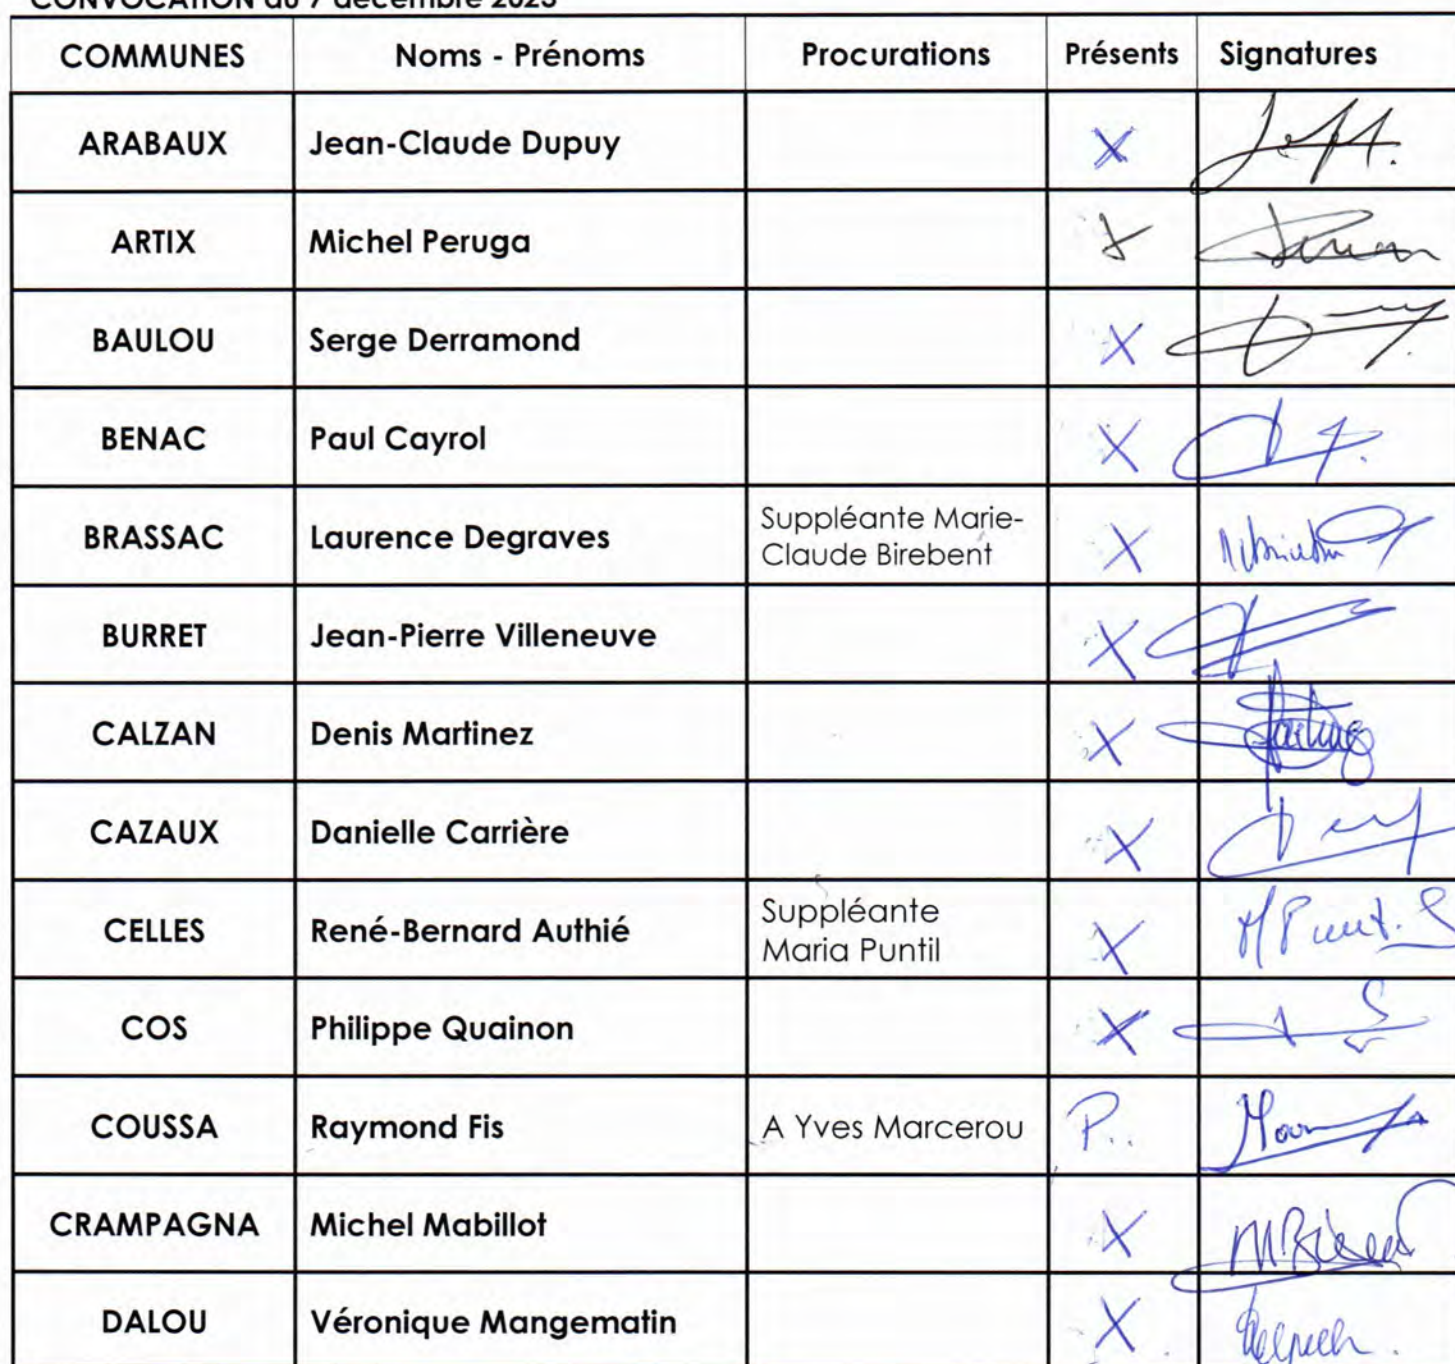 CONVOCATION du 7 décembre 2023
COMMUNES Noms - Prénoms Procurations Présents Signatures
ARABAUX Jean-Claude Dupuy X
ARTIX Michel Peruga X
BAULOU Serge Derramond X
BENAC Paul Cayrol X
BRASSAC Laurence Degraves Suppléante Marie-
Claude Birebent X
BURRET Jean-Pierre Villeneuve X
CALZAN Denis Martinez X
CAZAUX Danielle Carrière X
CELLES René-Bernard Authié Suppléante
Maria Puntil X
COS Philippe Quainon X
COUSSA Raymond Fis A Yves Marcerou P.
CRAMPAGNA Michel Mabillot X
DALOU Véronique Mangematin X